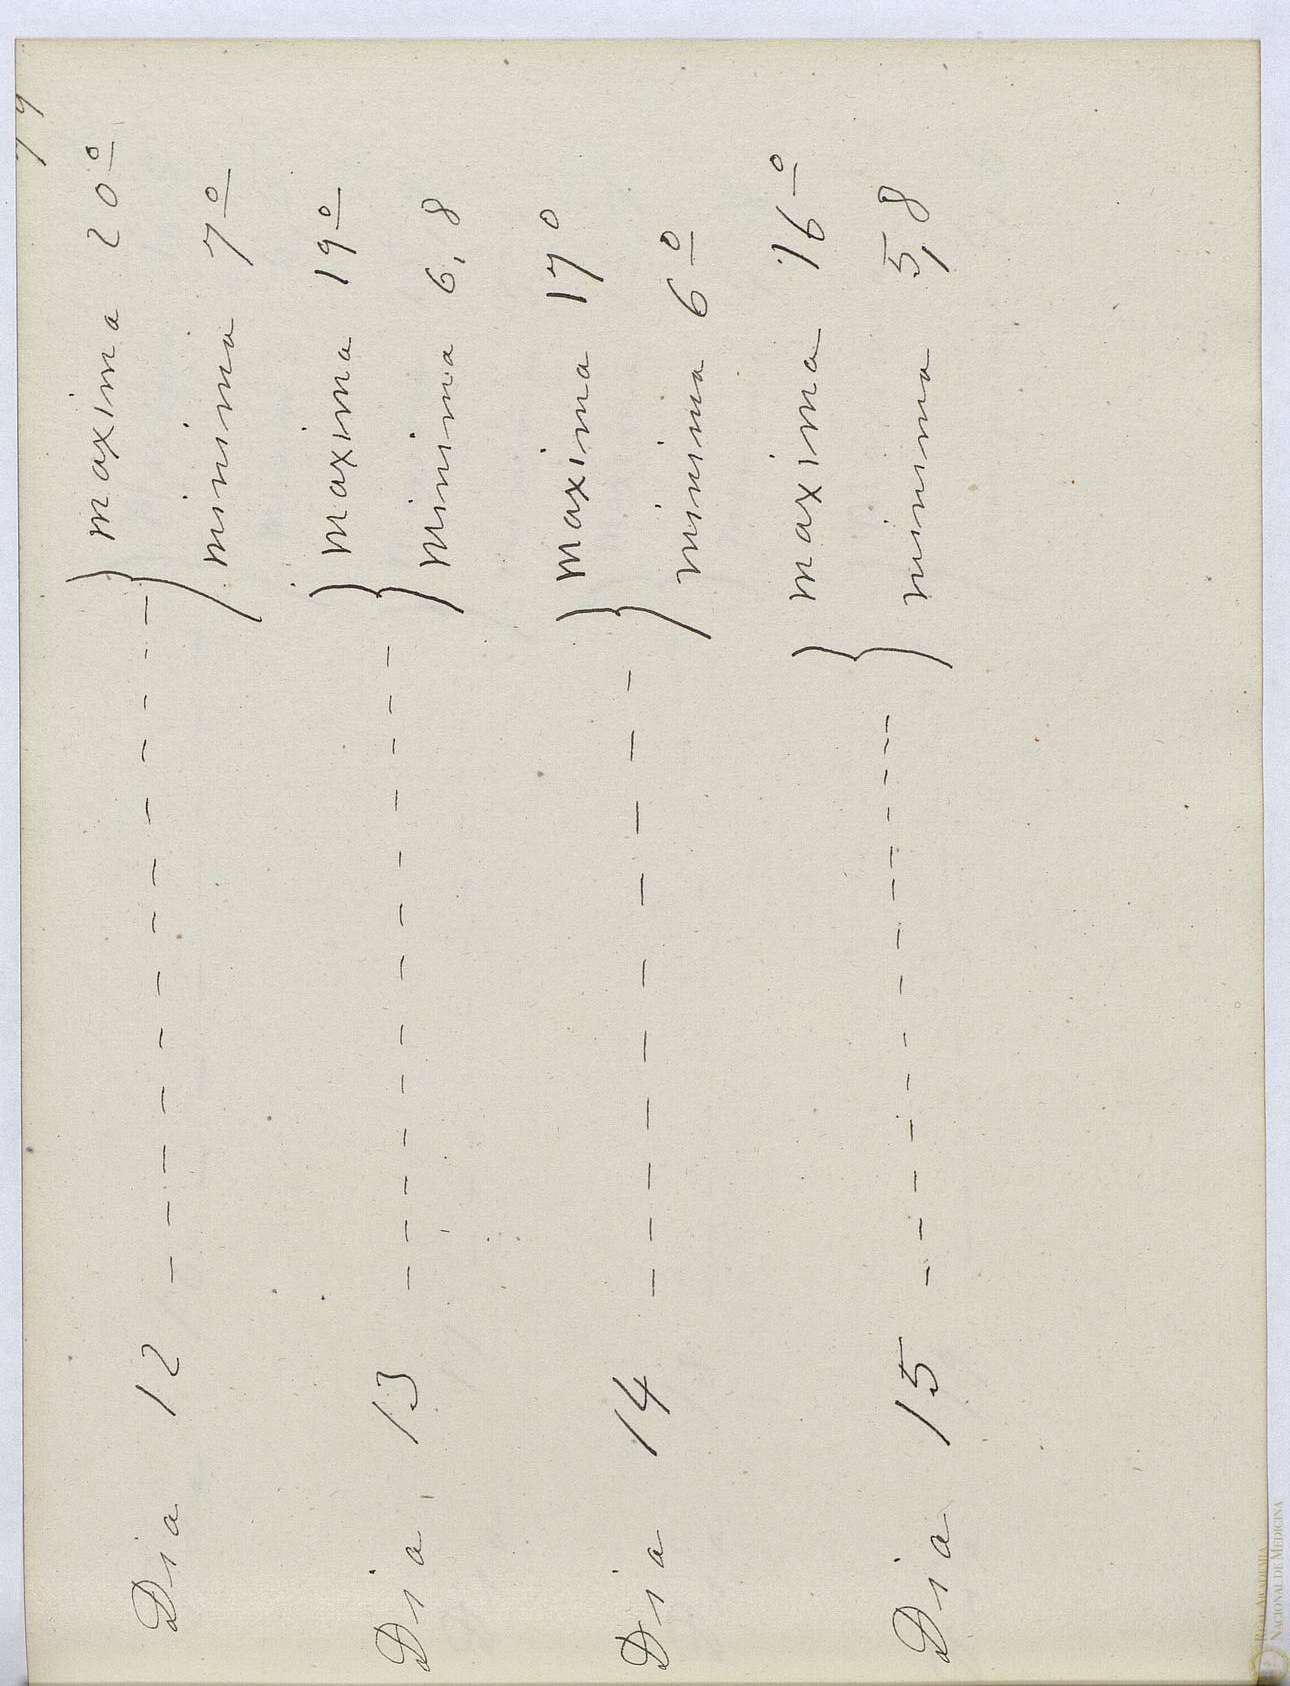 maxima 20º
Dia 12 - - - - - - - - - - - - - }
minima 7º
maxima 19º
Dia 13 - - - - - - - - - - - - - }
minima 6,8
maxima 17º
Dia 14 - - - - - - - - - - - }
minima 6º
maxima 16º
Dia 15 - - - - - - - - - - - - - }
minima 5,8
REAL ACADEMIA
NACIONAL DE MEDICINA